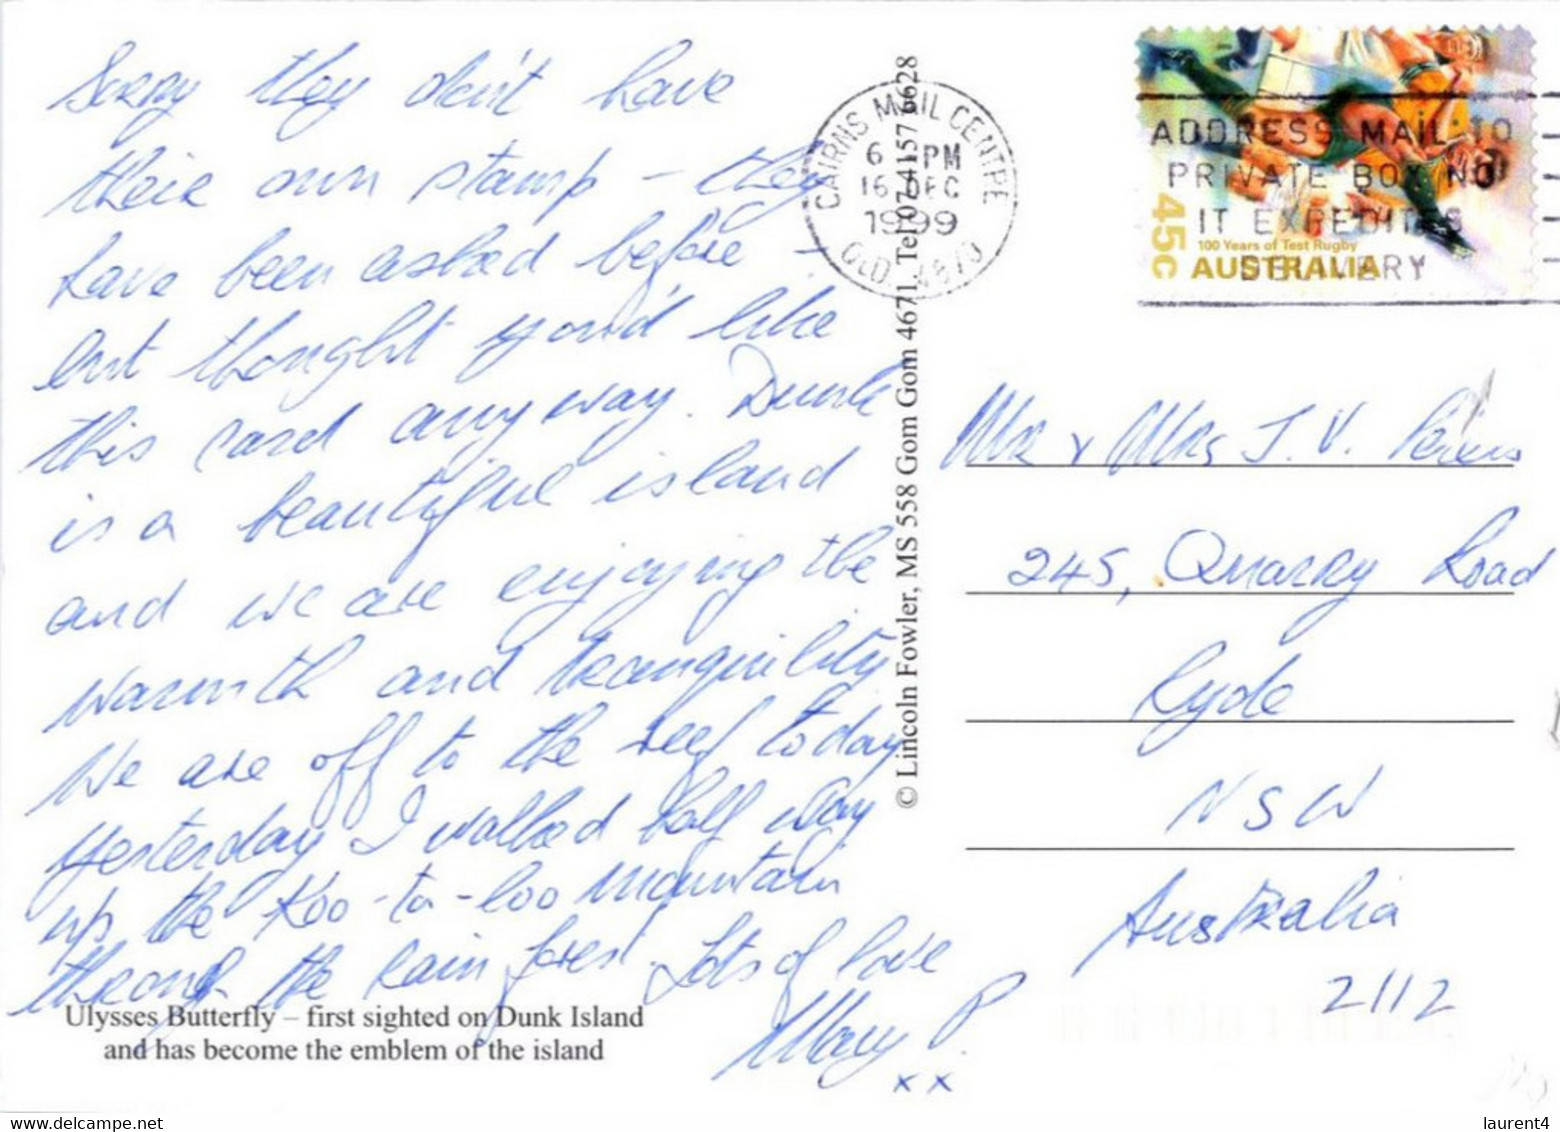 Sorry they don't have
their own stamp - they
have been asked before -
but thought you'd like
this card anyway. Dunk
is a beautiful island
and we are enjoying the
warmth and tranquility
We are off to the reef today
Yesterday I walked half way
up the Koo-ta-loo mountain
through the rain forest. Lots of love
Mary P
x x
Ulysses Butterfly – first sighted on Dunk Island
and has become the emblem of the island
© Lincoln Fowler, MS 558 Gom Gom 4671, Tel 07 4157 6628
CAIRNS MAIL CENTRE
6 PM
16 DEC
1999
QLD. 4870
ADDRESS MAIL TO
PRIVATE BOX NO
IT EXPEDITES
DELIVERY
45c
100 Years of Test Rugby
AUSTRALIA
Mr & Mrs J. V.
245, Quarry Road
Ryde
NSW
Australia
2112
www.delcampe.net
laurent4